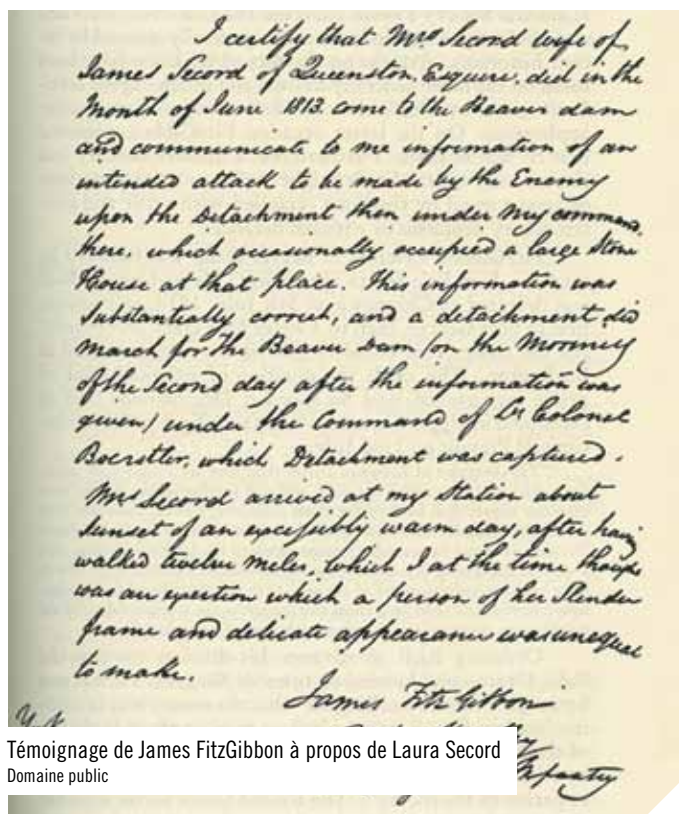 I certify that Mrs Second wife of
James Secord of Queenston, Esquire, did in the
Month of June 1813. come to the Beaver dam
and communicate to me information of an
intended attack to be made by the Enemy
upon the Detachment then under my command
there, which occasionally occupied a large Stone
House at that place. This information was
Substantially correct, and a detachment did
March for the Beaver Dam (on the Morning
of the Second day after the information was
given) under the Command of Lt Colonel
Boerstler, which Detachment was captured.
Mrs Secord arrived at my Station about
Sunset of an excessively warm day, after having
walked twelve miles, which I at the time thought
was an exertion which a person of her Slender
frame and delicate appearance was unequal
to make.
James FitzGibbon
Infantry
Témoignage de James FitzGibbon à propos de Laura Secord
Domaine public